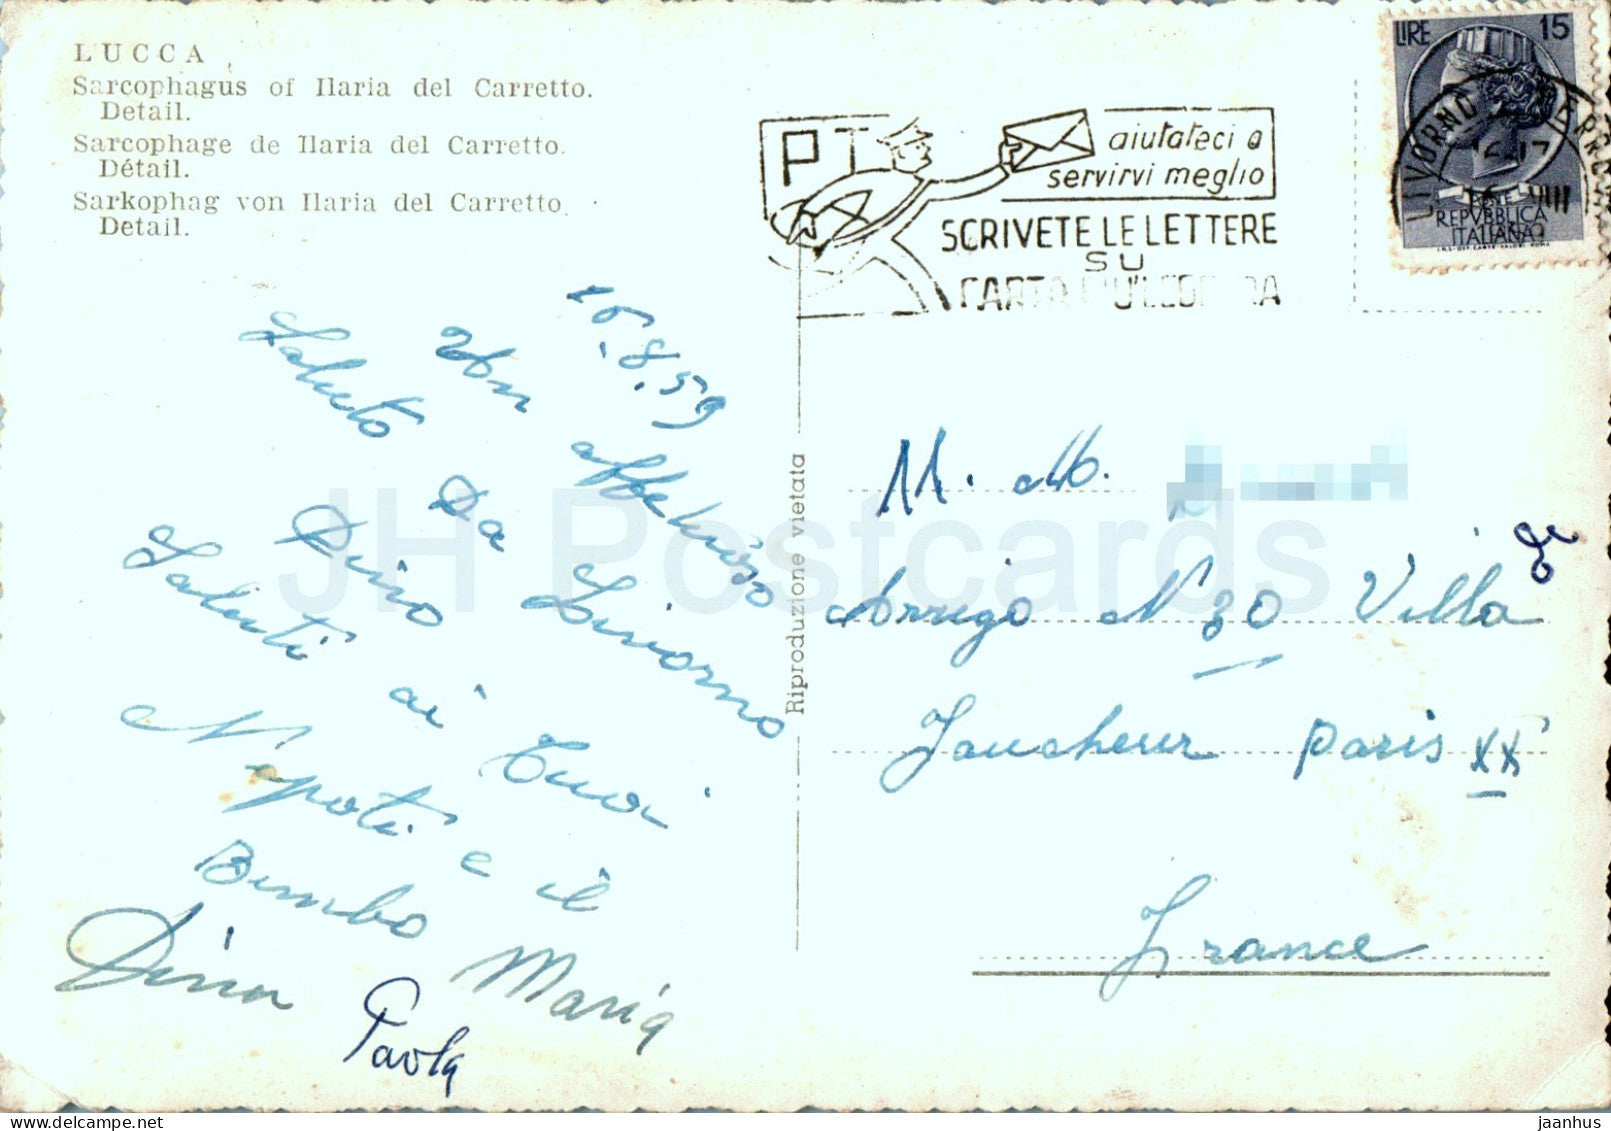 LUCCA
Sarcophagus of Ilaria del Carretto.
Detail.
Sarcophage de Ilaria del Carretto.
Détail.
Sarkophag von Ilaria del Carretto.
Detail.
PT
aiutateci a
servirvi meglio
SCRIVETE LE LETTERE
SU
LIRE 15
LIVORNO
REPVBBLICA
ITALIANA
Riproduzione vietata
Un affettuoso
Saluto Da Livorno
Dino
Saluti ai Tuoi
Nepoti e il
Bimbo Maria
Dina
Paola
M. M.
Arrigo N 30 Villa
Faucheur Paris XX
France
JH Postcards
delcampe.net
jaanhus